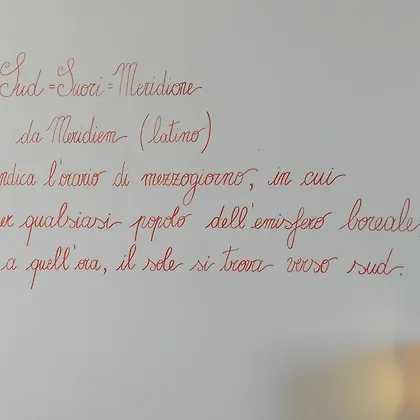 Sud = Suori = Meridione
da Meridiem (latino)
ndica l'orario di mezzogiorno, in cui
er qualsiasi popolo dell'emisfero boreale
a quell'ora, il sole si trova verso sud.